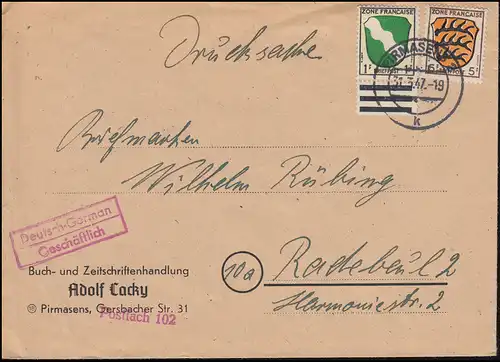 Drucksache
ZONE FRANÇAISE
1
ZONE FRANÇAISE
5
PIRMASENS
31.3.47.-19
k
Briefmarken
Wilhelm Rübing
Deutsch-German
Geschäftlich
Buch- und Zeitschriftenhandlung
Adolf Cacky
Pirmasens, Gersbacher Str. 31
Postfach 102
10a
Radebeul 2
Harmoniestr. 2